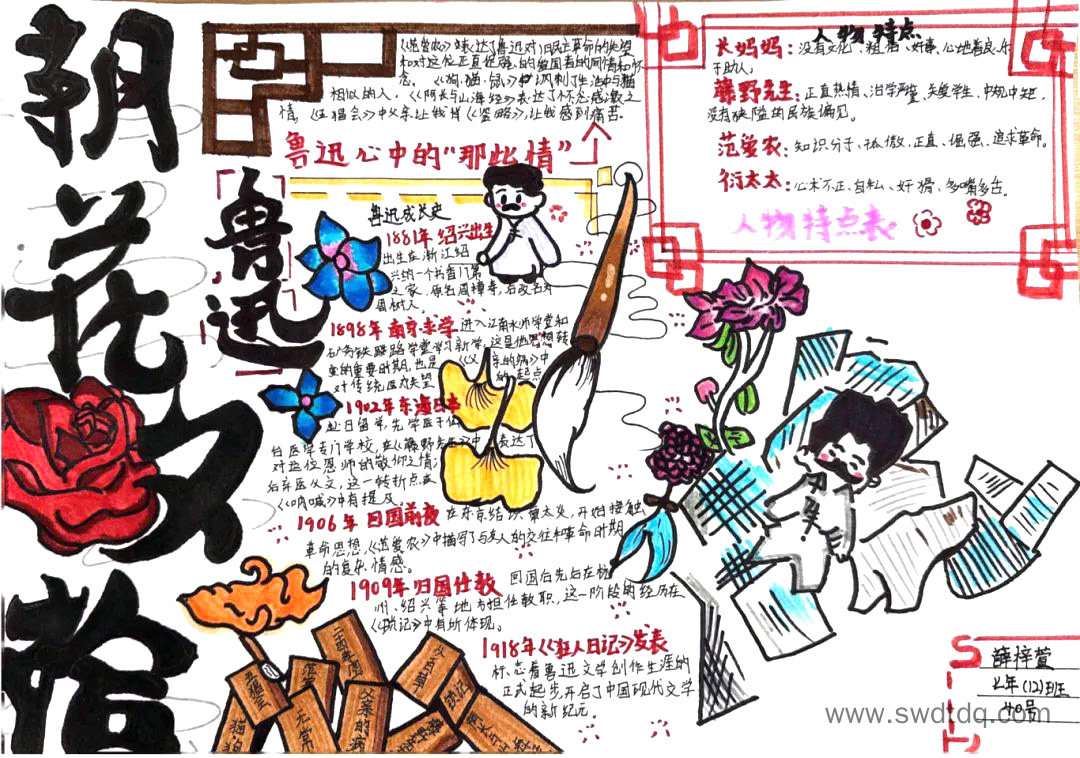 朝花夕拾
鲁迅
《范爱农》表达了鲁迅对旧民主革命的失望
和对这位正直倔强的爱国者的同情和怀
念。《狗·猫·鼠》讽刺了生活中与猫
相似的人。《阿长与山海经》表达了怀念感激之
情。
让我感到痛苦。
鲁迅心中的“那些情”
人物特点
长妈妈：没有文化、粗俗、好事、心地善良、乐
于助人。
藤野先生：正直热情、治学严谨、关爱学生、
没有狭隘的民族偏见。
范爱农：知识分子、孤傲、正直、倔强、追求革命。
衍太太：心术不正、自私、奸猾、多嘴多舌。
人物特点表
鲁迅成长史
1881年 绍兴出生
出生在浙江绍
兴的一个书香门第
之家，原名周樟寿，后改名为
周树人。
1898年 南京求学 进入江南水师学堂和
矿务铁路学堂学习新学，这是他思想转
变的重要时期，也是《父亲的病》中
对传统医术失望的起点
1902年 东渡日本
赴日留学，先学医于仙
台医学专门学校，在《藤野先生》中表达了
对这位恩师的敬仰之情；
后弃医从文，这一转折点在
《呐喊》中有提及。
1906年 回国前夜 在东京结识章太炎，开始接触
革命思想，《范爱农》中描写了与友人的交往和革命时期
的复杂情感。
1909年 归国任教 回国后先后在杭
州、绍兴等地方担任教职，这一阶段的经历在
《琐记》中有所体现。
1918年《狂人日记》发表
标志着鲁迅文学创作生涯的
正式起步，开启了中国现代文学
的新纪元。
五猖会
无常
父亲的病
二十四孝图
琐记
薛梓萱
七年(12)班
40号
www.swdtdq.com